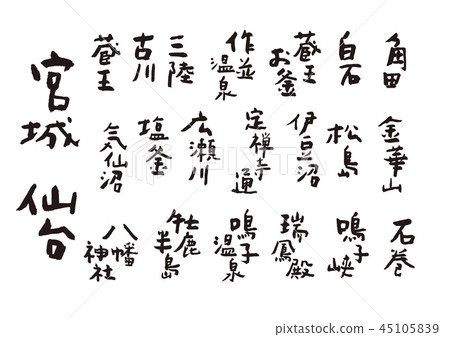 角田
白石
蔵王
お釜
作並
温泉
三陸
古川
蔵王
金華山
松島
伊豆沼
定禅寺
通
広瀬川
塩釜
気仙沼
石巻
鳴子
峡
瑞鳳殿
鳴子
温泉
牡鹿
半島
八幡
神社
宮城
仙台
45105839